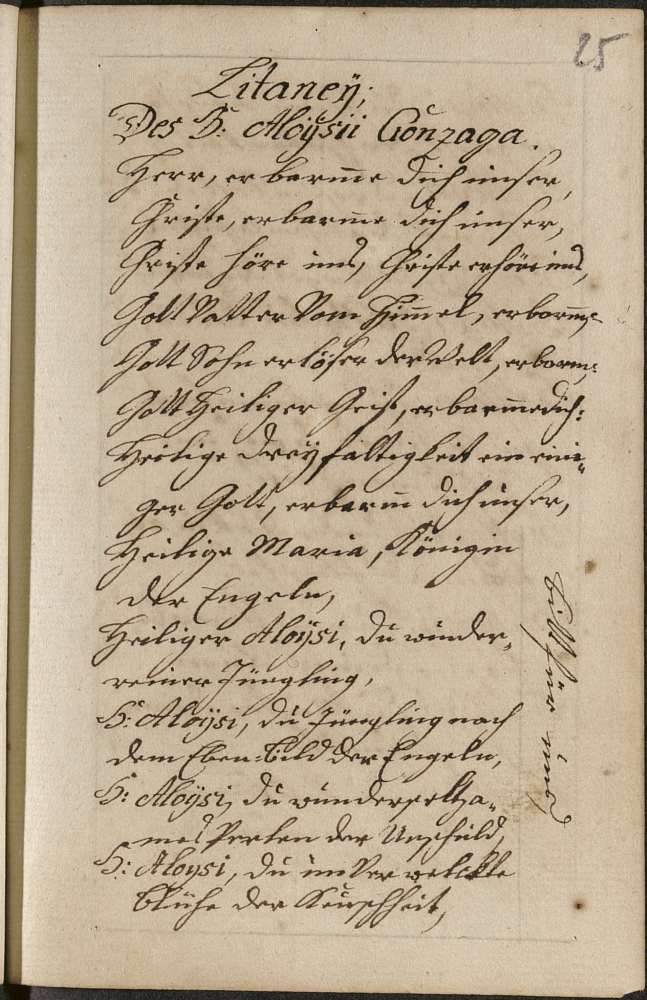 25
Litaneÿ;
Des H: Aloÿsii Gonzaga.
Herr, erbarme dich unser,
Christe, erbarme dich unser,
Christe höre uns, Christe erhöre uns,
Gott Vatter Vom Himel, erbarme
Gott Sohn erlöser der Welt, erbarm:
Gott Heiliger Geist, erbarme dich:
Heilige dreÿfaltigkeit ein eini„
ger Gott, erbarm dich unser,
Heilige Maria, Königin
der Engeln,
Heiliger Aloÿsi, du wunder„
reiner Jüngling,
H: Aloÿsi, du Jüngling nach
dem Eben-bild der Engeln,
H: Aloÿsi, du wunderseltsa„
mes Perlen der Unschuld,
H: Aloysi, du unverwelckte
blühe der Keuschheit,
bitt für uns